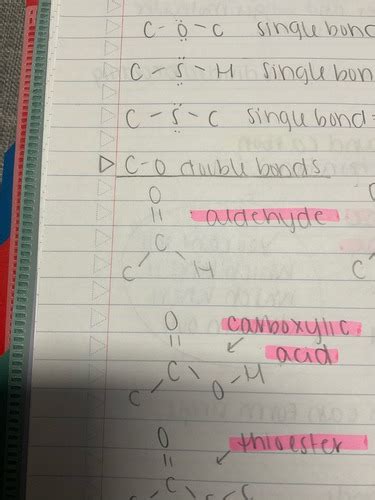 C-Ö-C single bond
C-S-H single bon
C-S-C single bond=
C-O double bonds
O
||
aldehyde
C
C H C
O carboxylic
||
acid
C
C O-H
O thioester
||
C C S